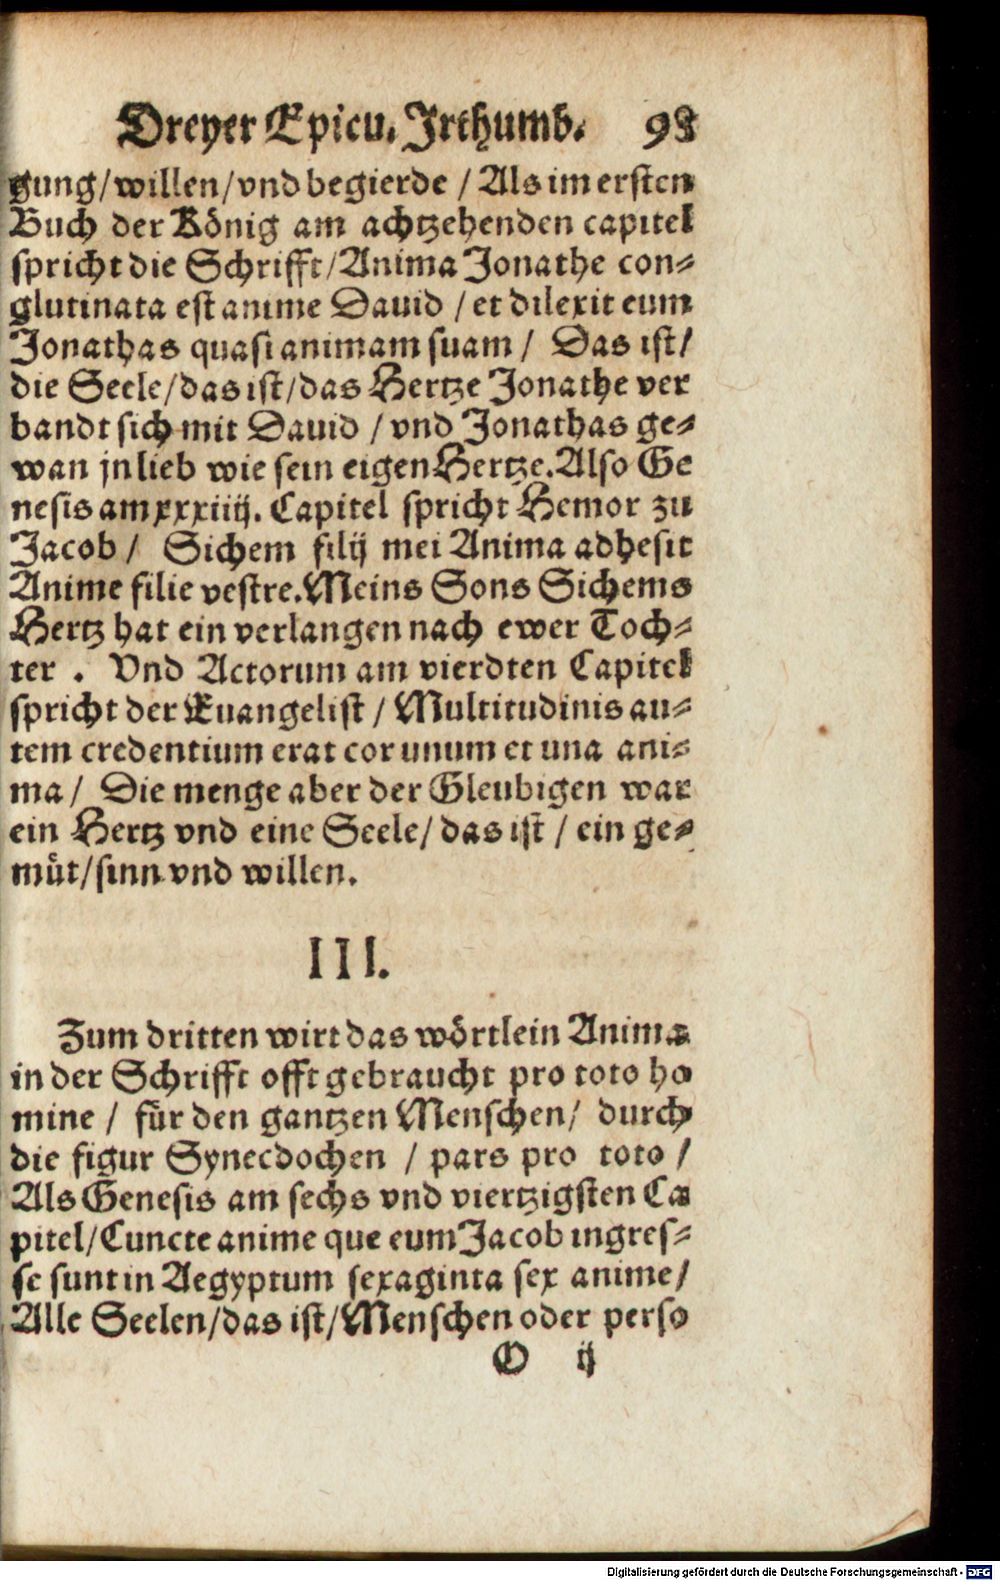 Dreyer Epicu. Jrthumb. 98
gung/willen/vnd begierde / Als im ersten
Buch der König am achtzehenden capitel
spricht die Schrifft/Anima Jonathe con-
glutinata est anime Dauid / et dilexit eum
Jonathas quasi animam suam / Das ist/
die Seele/das ist/das Hertze Jonathe ver
bandt sich mit Dauid / vnd Jonathas ge-
wan jn lieb wie sein eigen Hertze. Also Ge
nesis am xxxiiij. Capitel spricht Hemor zu
Jacob / Sichem filij mei Anima adhesit
Anime filie vestre. Meins Sons Sichems
Hertz hat ein verlangen nach ewer Toch-
ter . Vnd Actorum am vierdten Capitel
spricht der Euangelist / Multitudinis au-
tem credentium erat cor unum et una ani-
ma / Die menge aber der Gleubigen war
ein Hertz vnd eine Seele/ das ist / ein ge-
müt/sinn vnd willen.
III.
Zum dritten wirt das wörtlein Anima
in der Schrifft offt gebraucht pro toto ho
mine / für den gantzen Menschen/ durch
die figur Synecdochen / pars pro toto /
Als Genesis am sechs vnd viertzigsten Ca
pitel/Cuncte anime que eum Jacob ingres-
se sunt in Aegyptum sexaginta sex anime/
Alle Seelen/das ist/Menschen oder perso
O ij
Digitalisierung gefördert durch die Deutsche Forschungsgemeinschaft - DFG